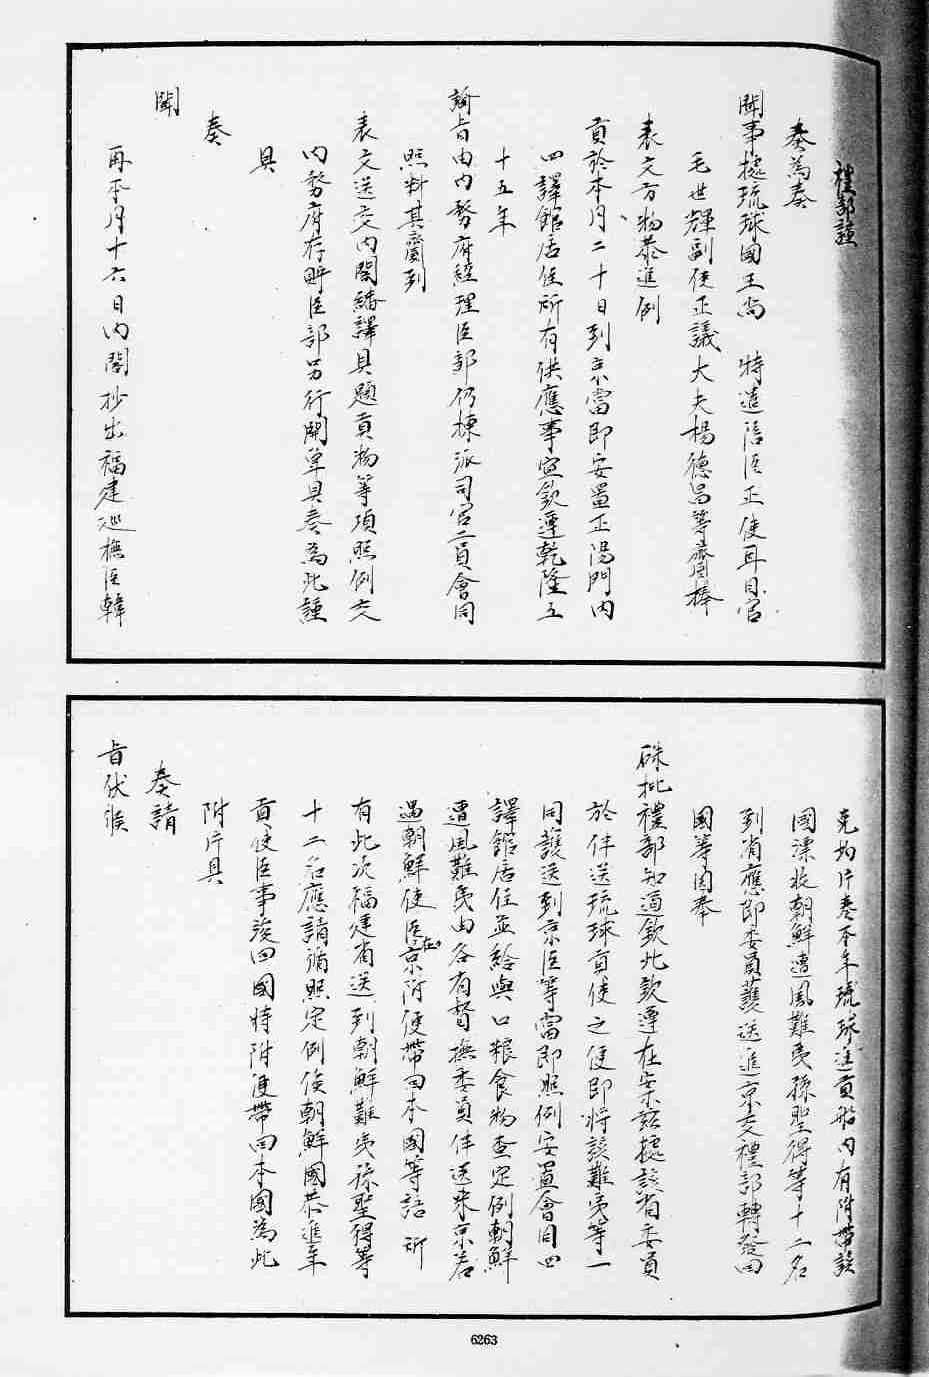 禮部謹
奏為奏
聞事據琉球國王尚　特遣陪臣正使耳目官
毛世輝副使正議大夫楊德昌等齎捧
表文方物恭進例
貢於本月二十日到京當即安置正陽門內
四譯館居住所有供應事宜欽遵乾隆五
十五年
諭旨由內務府經理臣部仍揀派司官二員會同
照料其齎到
表文送交內閣繙譯具題貢物等項照例交
內務府存貯臣部另行開單具奏為此謹
具
奏
聞
再本月十六日內閣抄出福建巡撫臣韓
克均片奏本年琉球進貢船內有附帶該
國漂收朝鮮遭風難夷孫聖得等十二名
到省應即委員護送進京交禮部轉發回
國等因奉
硃批禮部知道欽此欽遵在案茲據該省委員
於伴送琉球貢使之便即將該難夷等一
同護送到京臣等當即照例安置會同四
譯館居住並給與口糧食物查定例朝鮮
遭風難夷由各省督撫委員伴送來京若
遇朝鮮使臣在京附便帶回本國等語所
有此次福建省送到朝鮮難夷孫聖得等
十二名應請循照定例俟朝鮮國恭進年
貢使臣事竣回國時附便帶回本國為此
附片具
奏請
旨伏候
6263